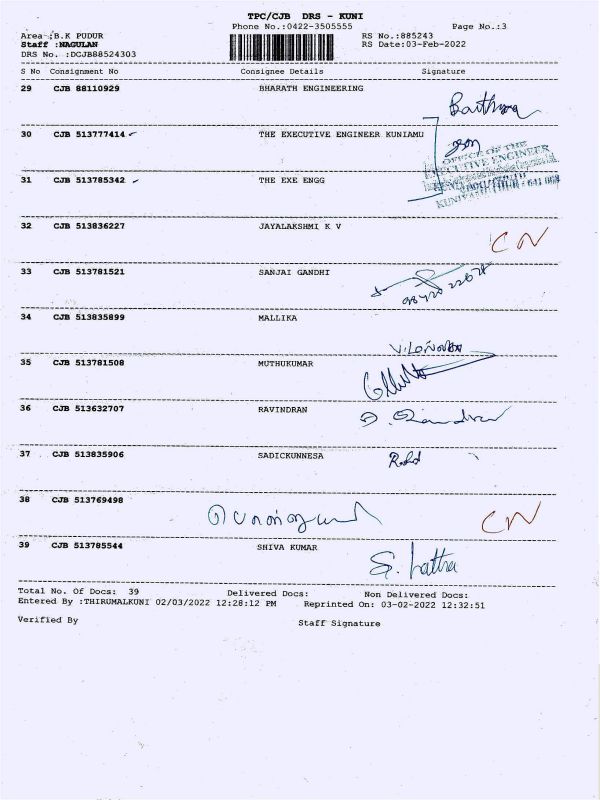 TPC/CJB DRS - KUNI
Phone No.:0422-3505555 Page No.:3
Area :B.K PUDUR RS No.:885243
Staff :NAGULAN RS Date:03-Feb-2022
DRS No. :DCJB88524303
S No Consignment No Consignee Details Signature
29 CJB 88110929 BHARATH ENGINEERING
30 CJB 513777414 THE EXECUTIVE ENGINEER KUNIAMU
OFFICE OF THE
EXECUTIVE ENGINEER
31 CJB 513785342 THE EXE ENGG
KUNIYAMUTHUR - 641 008
32 CJB 513836227 JAYALAKSHMI K V
CN
33 CJB 513781521 SANJAI GANDHI
34 CJB 513835899 MALLIKA
35 CJB 513781508 MUTHUKUMAR
36 CJB 513632707 RAVINDRAN
37 CJB 513835906 SADICKUNNESA
38 CJB 513769498
CN
39 CJB 513785544 SHIVA KUMAR
S. Latha
Total No. Of Docs: 39 Delivered Docs: Non Delivered Docs:
Entered By :THIRUMALKUNI 02/03/2022 12:28:12 PM Reprinted On: 03-02-2022 12:32:51
Verified By Staff Signature